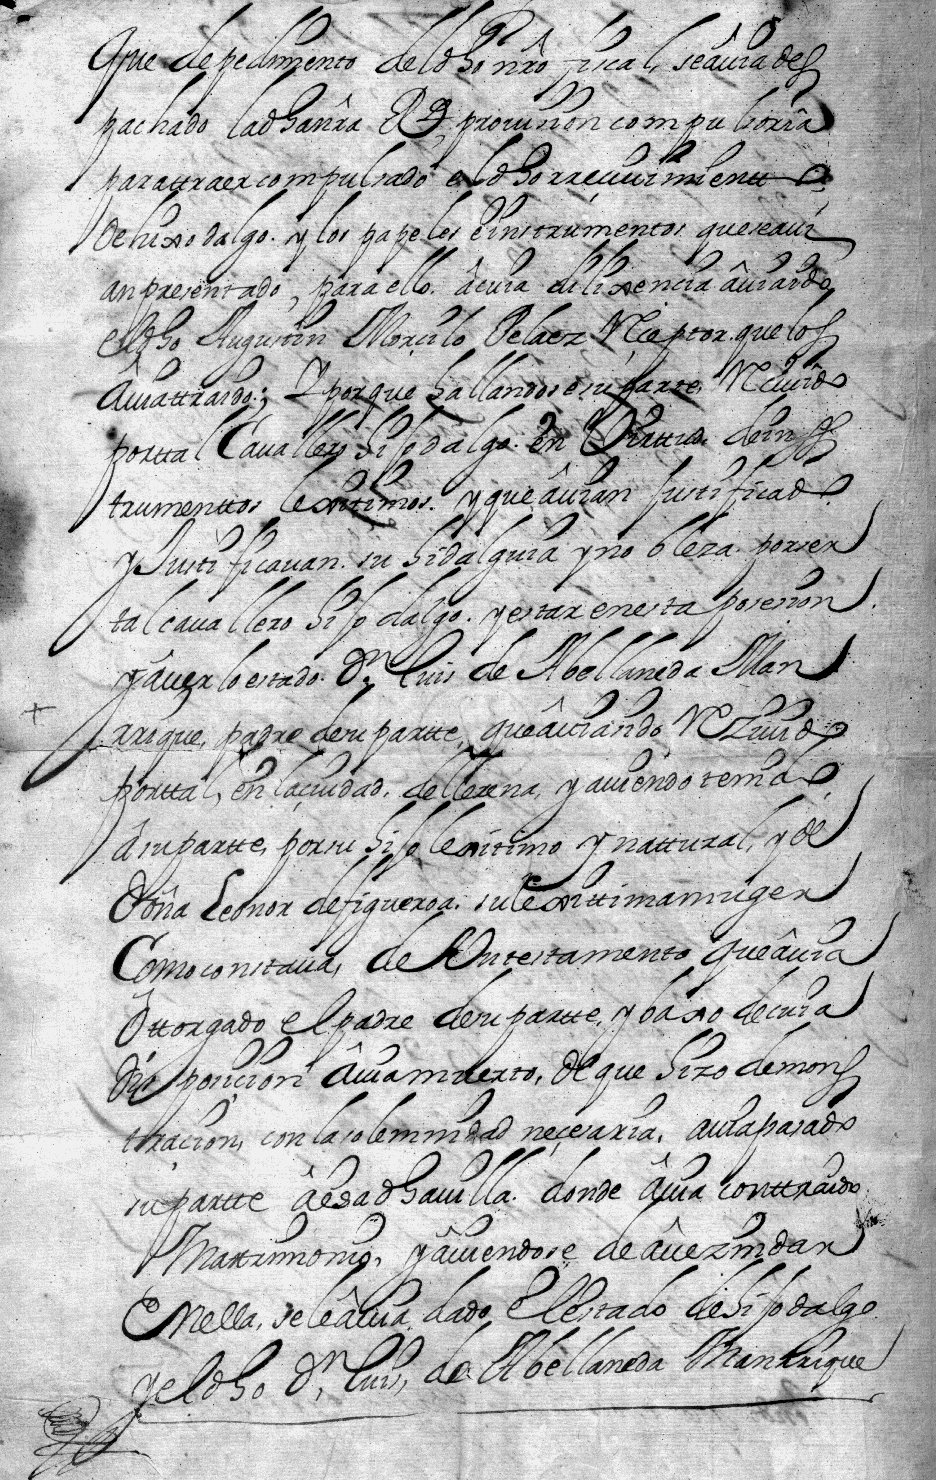 Que de pedimento del dho nrô fiscal, seâuia des
pachado la dha nrâ Rl prouission compulsoria
para ttraer compulsado el dho rreciuimientto
de hixodalgo. y los papeles e instrumentos que se aui
an presentado, para ello. â cuia dilixencia âuia ido
el dho Augustin Morçilo Pelaez Rezeptor. que los
âuia ttraido; Y porque hallandose su parte, Reciuido
por ttal Cauallero hijodalgo en Virttud de ins
trumenttos lexitimos. y que âuian justificado
y Justificauan. su hidalguia y nobleza. por ser
tal cauallero hijo dalgo. y estar en esta posesion
y âuerlo estado. Dn Luis de Abellaneda Man
rrique, padre de su partte, que âuiando Rezuido
por ttal, en la çiudad, de llerena, y auiendo tenido
â su partte, por su hijo lexitimo y nattural, y de
Doña Leonor de figueroa. su lexittima muger
Como constaua, de Un testamento que âuia
Ottorgado el padre de su partte, y baxo de cuia
disposicion âuia muerto, de que hizo demons
tracion, con la solemnidad neçesaria, auia pasado
su partte â esa dha uilla. donde âuia conttraido
Mattrimonio, y âuiendose de âuezindar
En ella, se le âuia dado el estado de hijodalgo
y el dho Dn Luis, de Abellaneda Manrrique